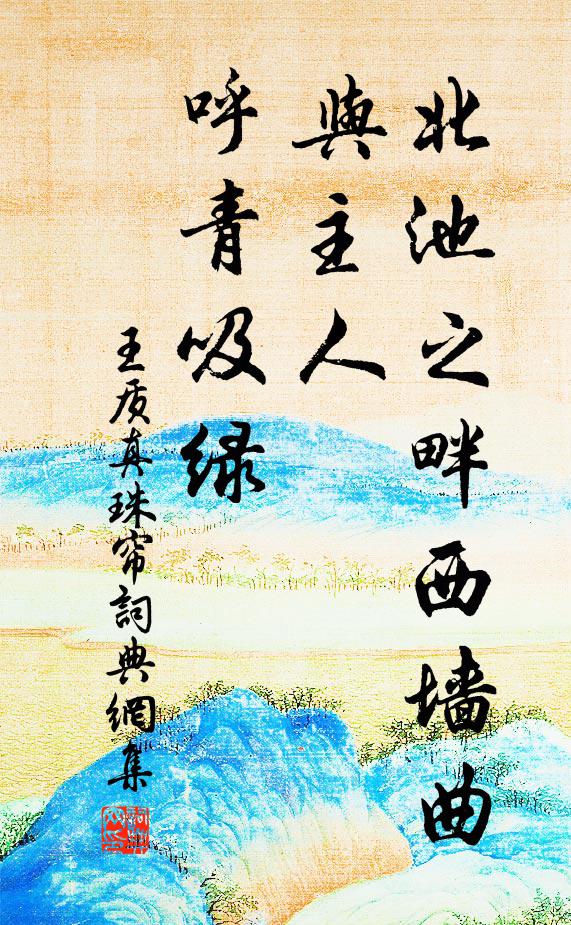 北池之畔西墙曲
與主人
呼青吸绿
王质真珠帘詞典網集